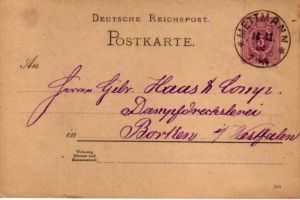 DEUTSCHE REICHSPOST.
POSTKARTE.
METTMANN
5
An
Herren Gebr. Haas & Comp.
Dampfdrechslerei
in Borken i/ Westfalen
Wohnung